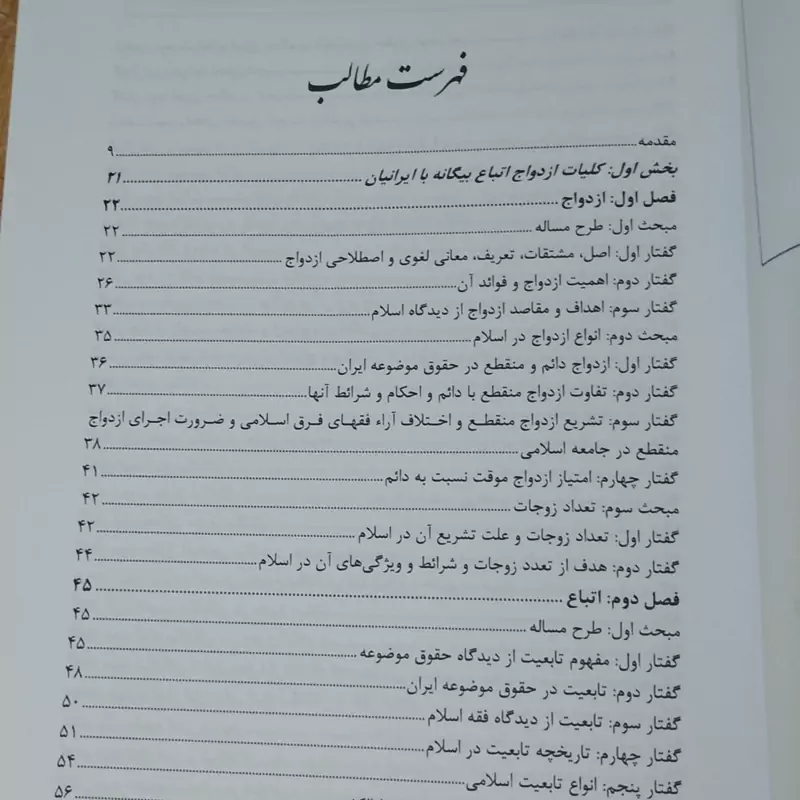 فهرست مطالب
مقدمه ۹
بخش اول: کلیات ازدواج اتباع بیگانه با ایرانیان ۲۱
فصل اول: ازدواج ۲۲
مبحث اول: طرح مساله ۲۲
گفتار اول: اصل، مشتقات، تعریف، معانی لغوی و اصطلاحی ازدواج ۲۲
گفتار دوم: اهمیت ازدواج و فوائد آن ۲۶
گفتار سوم: اهداف و مقاصد ازدواج از دیدگاه اسلام ۳۳
مبحث دوم: انواع ازدواج در اسلام ۳۵
گفتار اول: ازدواج دائم و منقطع در حقوق موضوعه ایران ۳۶
گفتار دوم: تفاوت ازدواج منقطع با دائم و احکام و شرائط آنها ۳۷
گفتار سوم: تشریع ازدواج منقطع و اختلاف آراء فقهای فرق اسلامی و ضرورت اجرای ازدواج
منقطع در جامعه اسلامی ۳۸
گفتار چهارم: امتیاز ازدواج موقت نسبت به دائم ۴۱
مبحث سوم: تعداد زوجات ۴۲
گفتار اول: تعداد زوجات و علت تشریع آن در اسلام ۴۲
گفتار دوم: هدف از تعدد زوجات و شرائط و ویژگی‌های آن در اسلام ۴۴
فصل دوم: اتباع ۴۵
مبحث اول: طرح مساله ۴۵
گفتار اول: مفهوم تابعیت از دیدگاه حقوق موضوعه ۴۵
گفتار دوم: تابعیت در حقوق موضوعه ایران ۴۸
گفتار سوم: تابعیت از دیدگاه فقه اسلام ۵۰
گفتار چهارم: تاریخچه تابعیت در اسلام ۵۱
گفتار پنجم: انواع تابعیت اسلامی ۵۴
۵۶